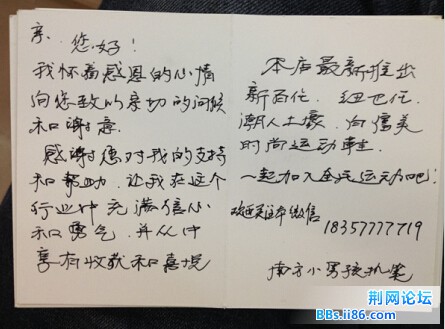 亲.您好！
我怀着感恩的心情
向您致以亲切的问候
和谢意.
感谢您对我的支持
和帮助.让我在这个
行业中充满信心
和勇气，并从中
享有收获和喜悦
本店最新推出
新百伦.纽巴伦.
潮人土壕.向儒美
时尚运动鞋.
一起加入全民运动吧！
欢迎关注本微信
18357777719
南方小男孩执笔
荆网论坛
BBs.ii86.com